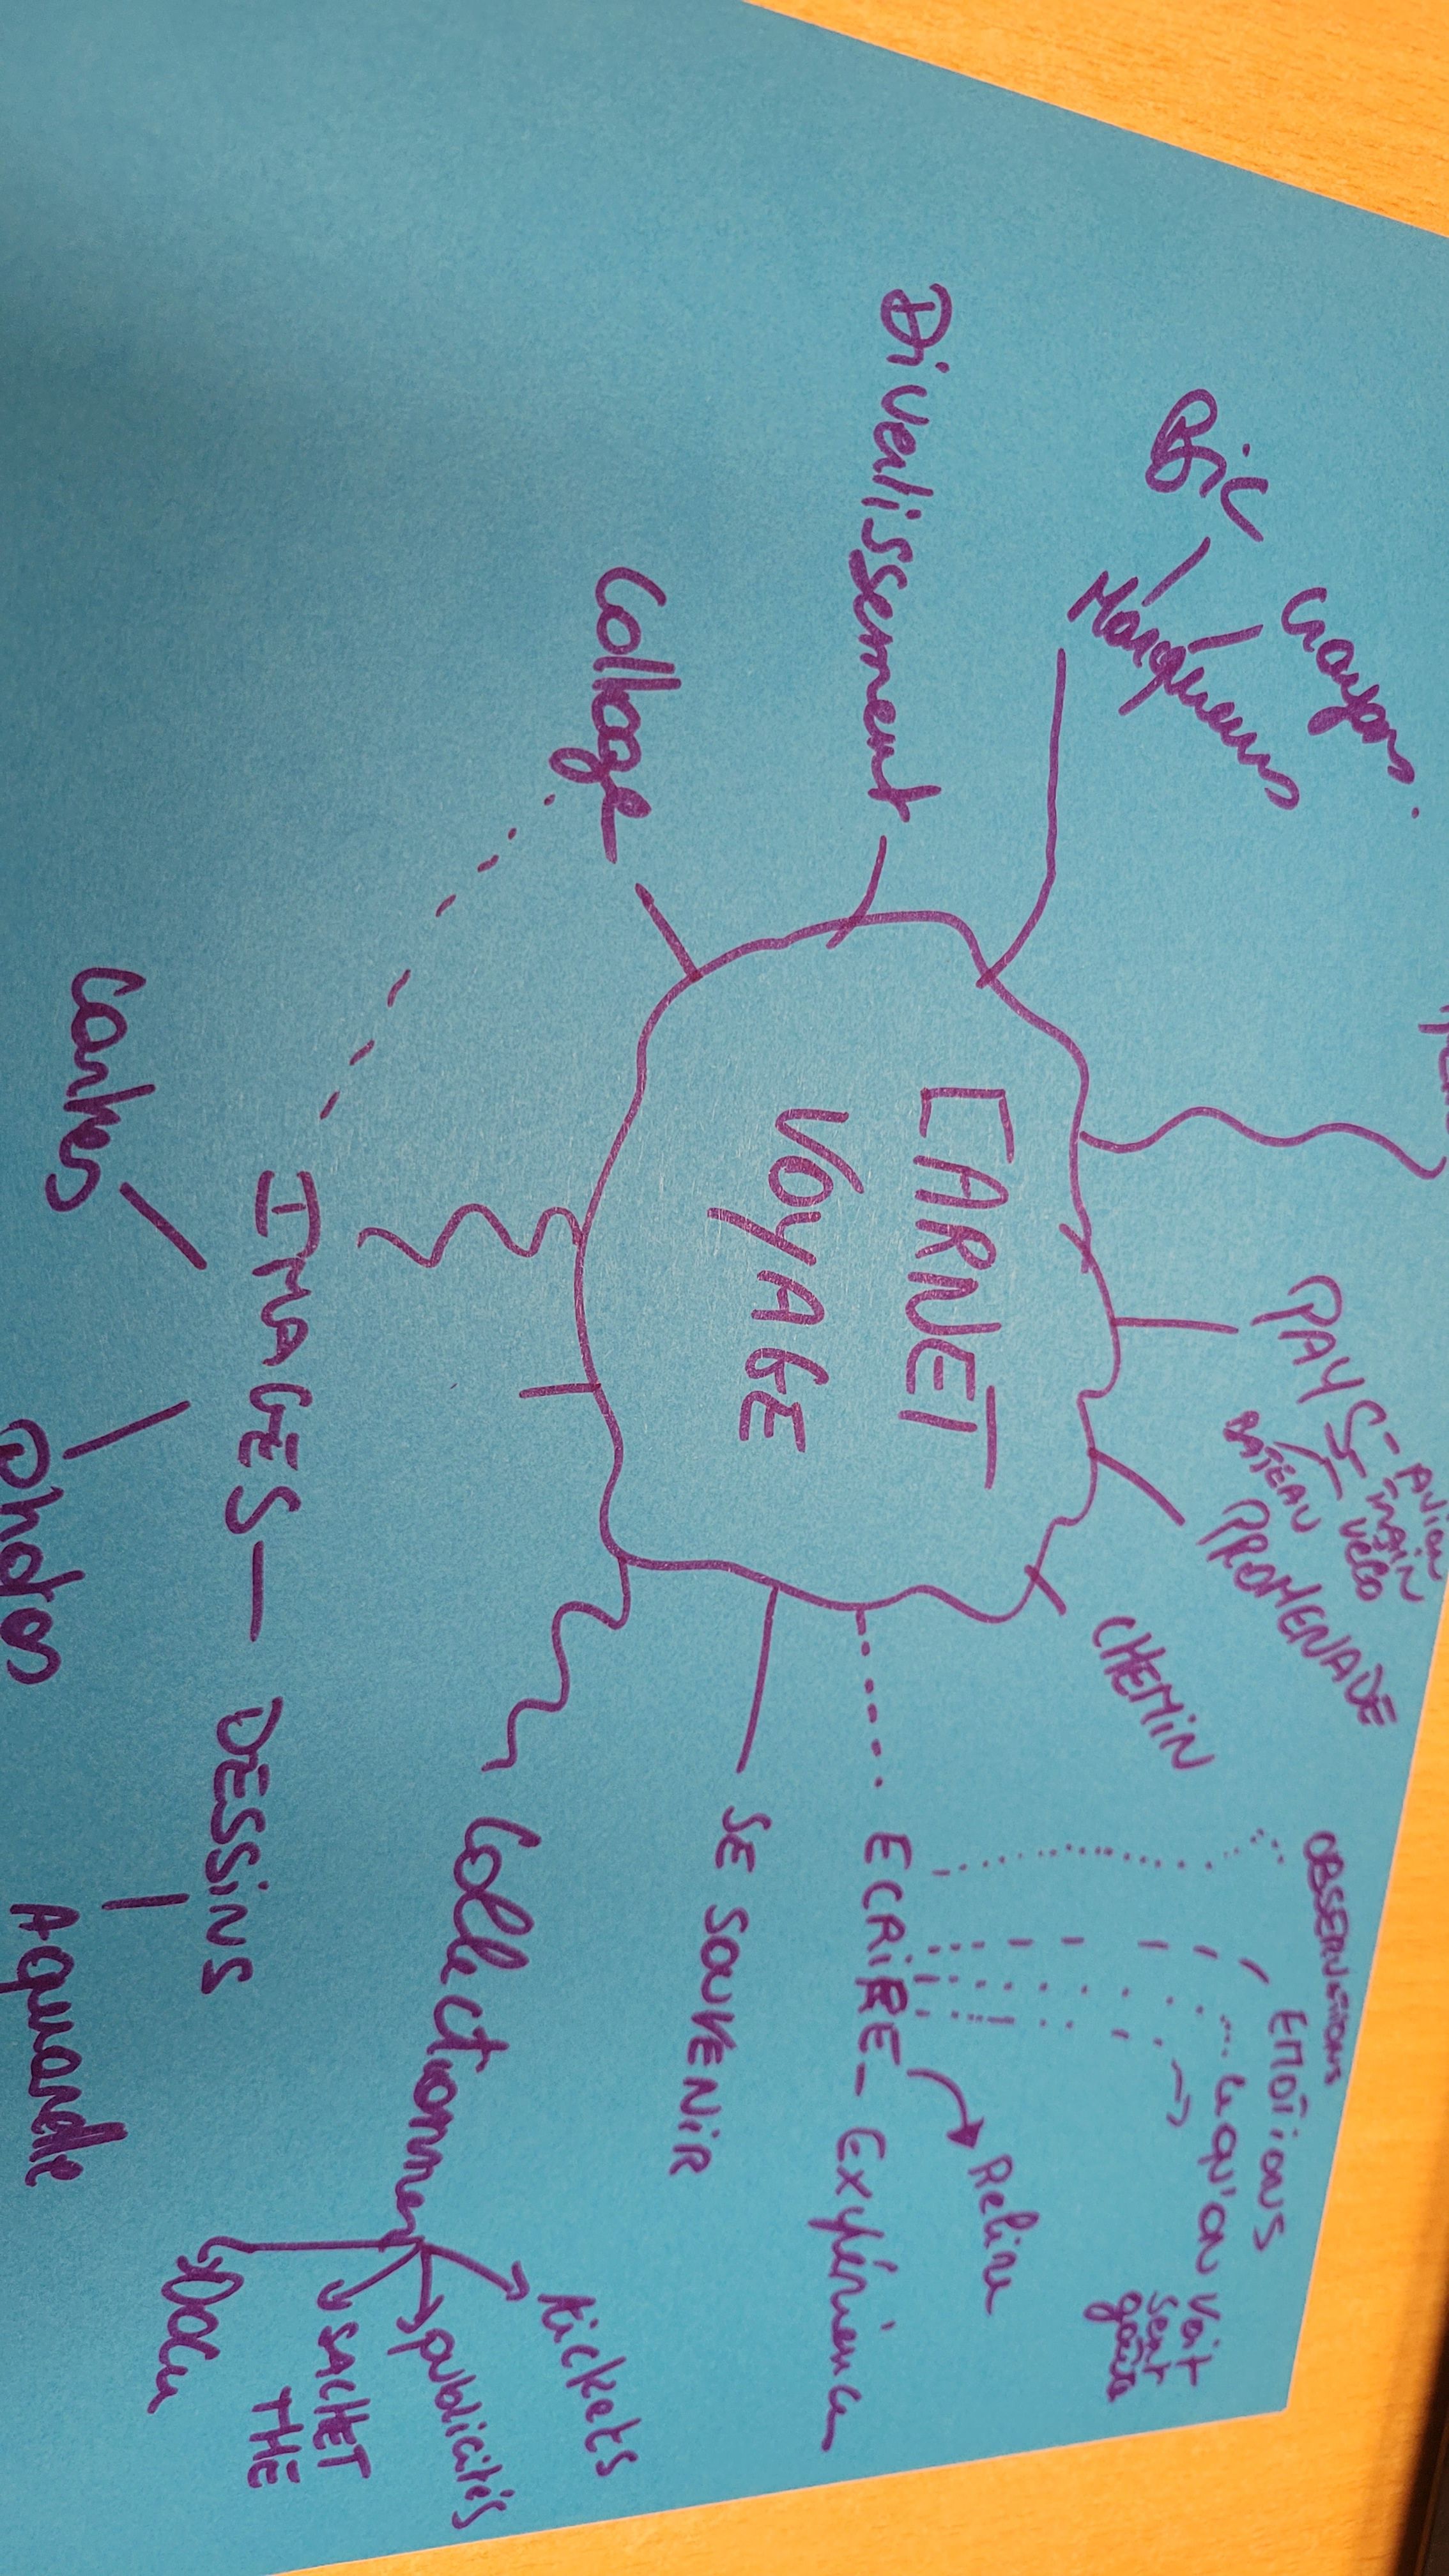 Bic
Crayons
Marqueurs
PAYS - AVION
TRAIN
VELO
BATEAU
PROMENADE
CHEMIN
OBSERVATIONS
EMOTIONS
Ce qu'on voit
sent
goûte
Divertissement
CARNET
VOYAGE
Relire
ECRIRE - Expérience
SE SOUVENIR
Collage
Collectionner
tickets
publicités
SACHET
THE
IMAGES - DESSINS
Cartes
Photos
Aquarelle